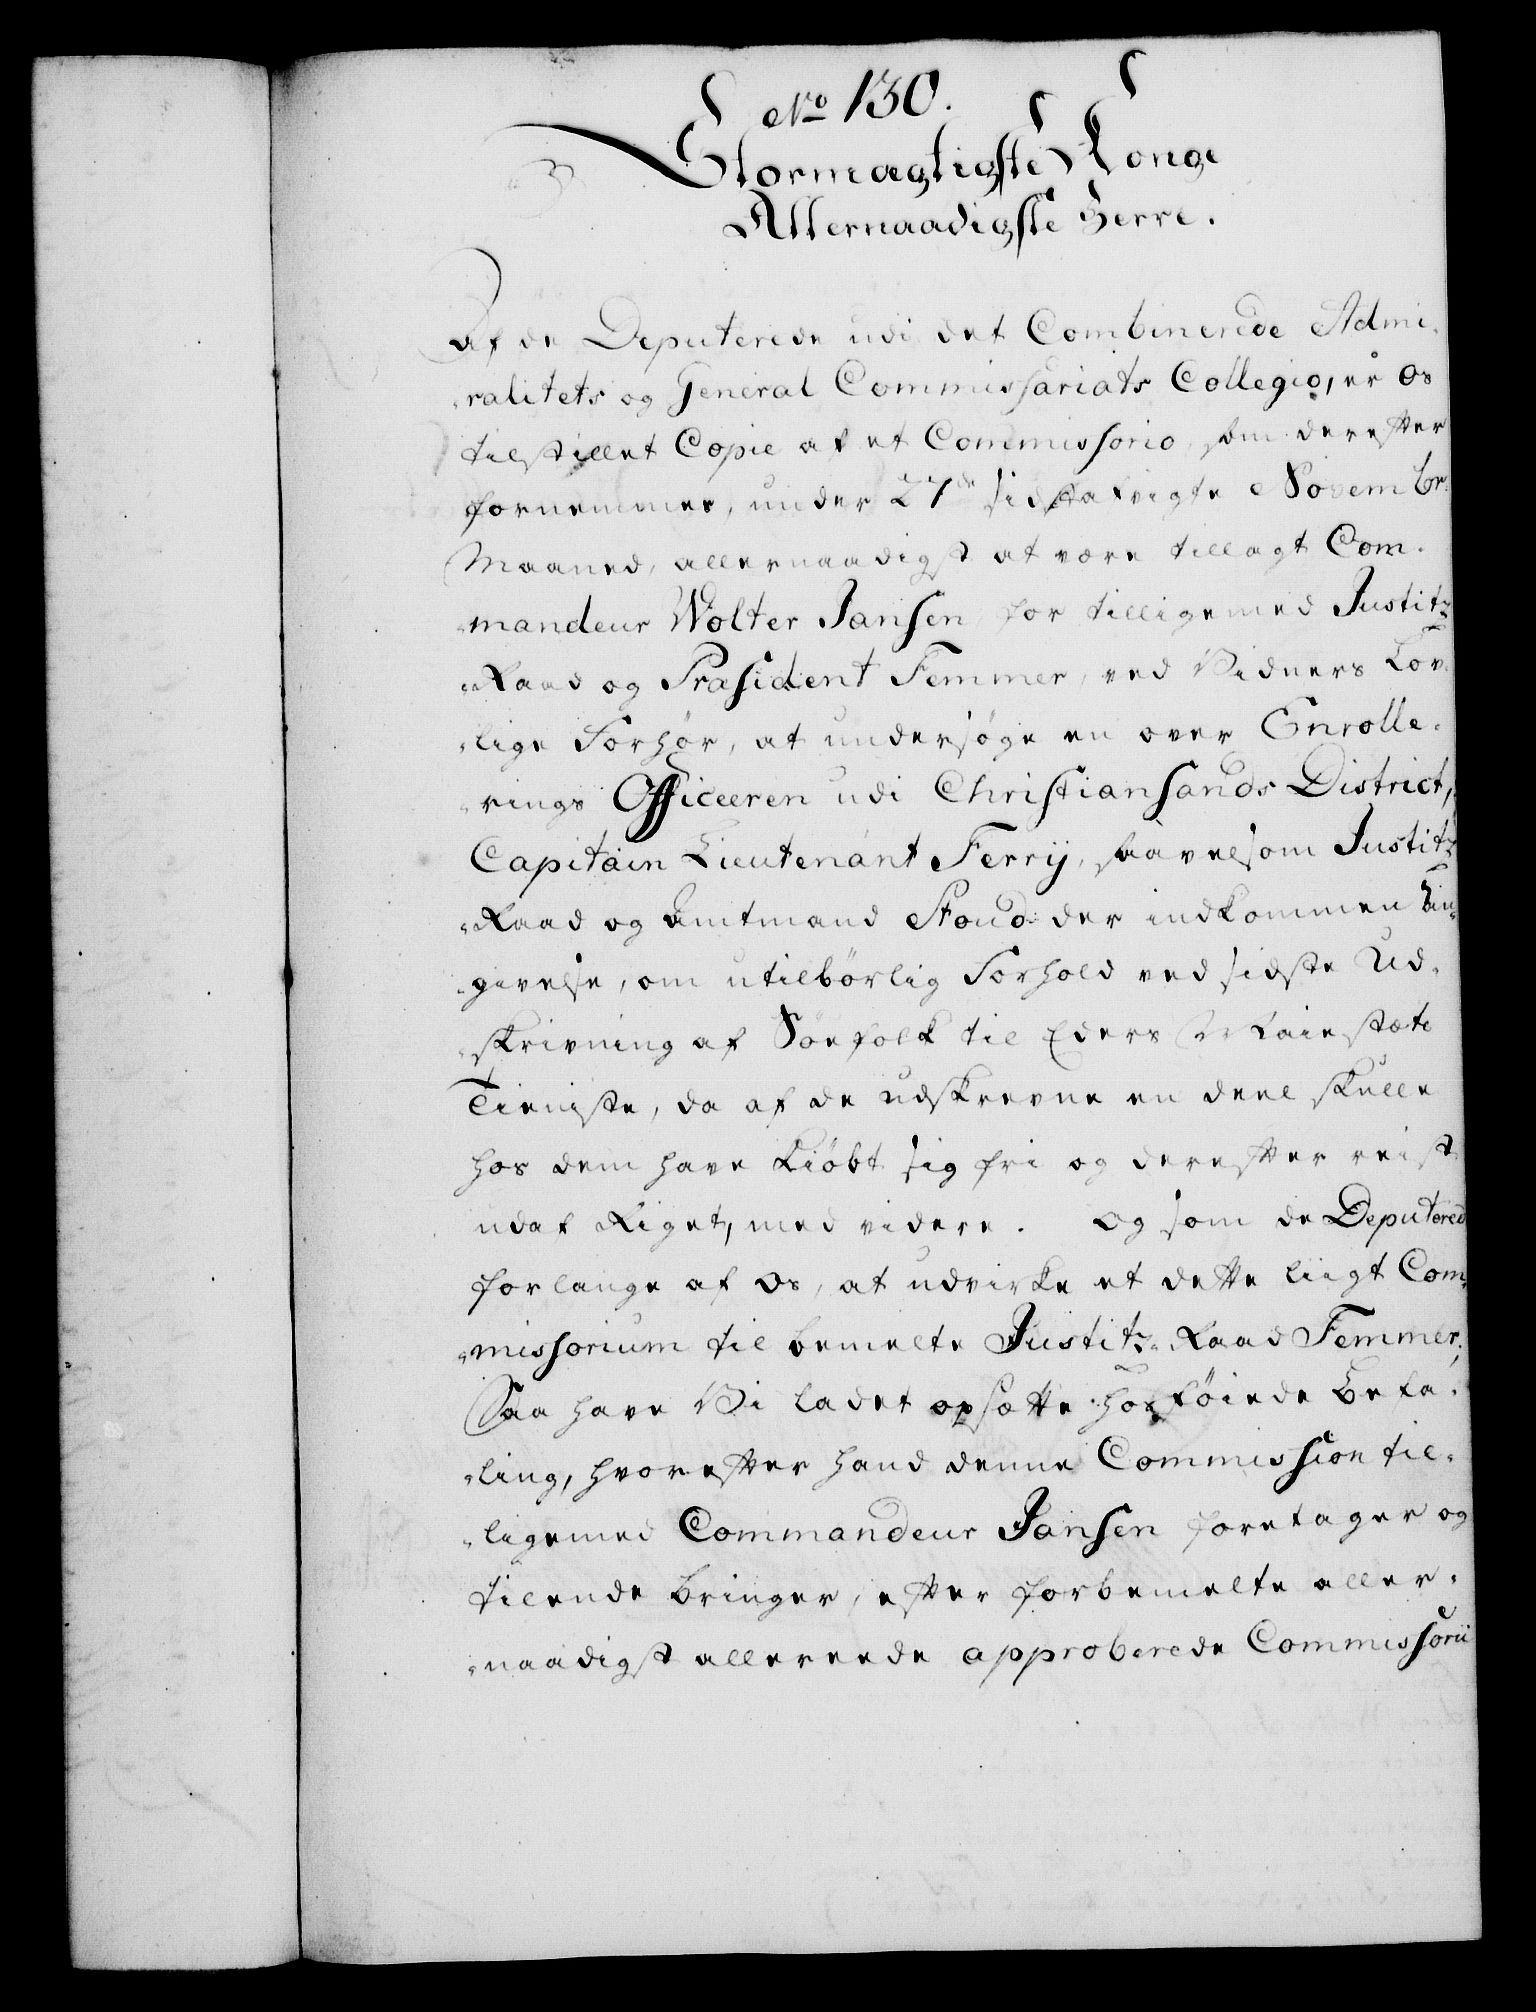 No 130.
Stormægtigste Konge
Allernaadigste Herre.
Af de Deputerede udi det Combinerede Admi-
-ralitets og General Commissariats Collegio, er os
tilstillet Copie af et Commissorio, som derefter
fornemmes, under 27de sidstafvigte Novembr:
Maaned, allernaadigst at være tillagt Com-
-mandeur Wolter Jansen, for tilligemed Justitz
-Raad og Præsident Femmer, ved Vidners Lov-
-lige Forhør, at undersøge en over Enrolle-
-rings Officeeren udi Christiansands District,
Capitain Lieutenant Ferrij, saavelsom Justitz
-Raad og Amtmand Stoud der indkommen An-
-givelse, om utilbørlig Forhold ved sidste Ud-
-skrivning af Söefolk til Eders Maiestæts
Tieniste, da af de udskrevne en deel skulle
hos dem have kiöbt sig fri og derefter reist
udaf Riget, med videre. Og som de Deputered
forlange af os, at udvirke et dette liigt Com-
-missorium til bemelte Justitz-Raad Femmer;
Saa have Vi ladet opsætte hosföiede Befa-
-ling, hvorefter hand denne Commission til-
-ligemed Commandeur Jansen foretager og
tilende bringer, efter forbemelte aller-
-naadigst allereede approberede Commissorii